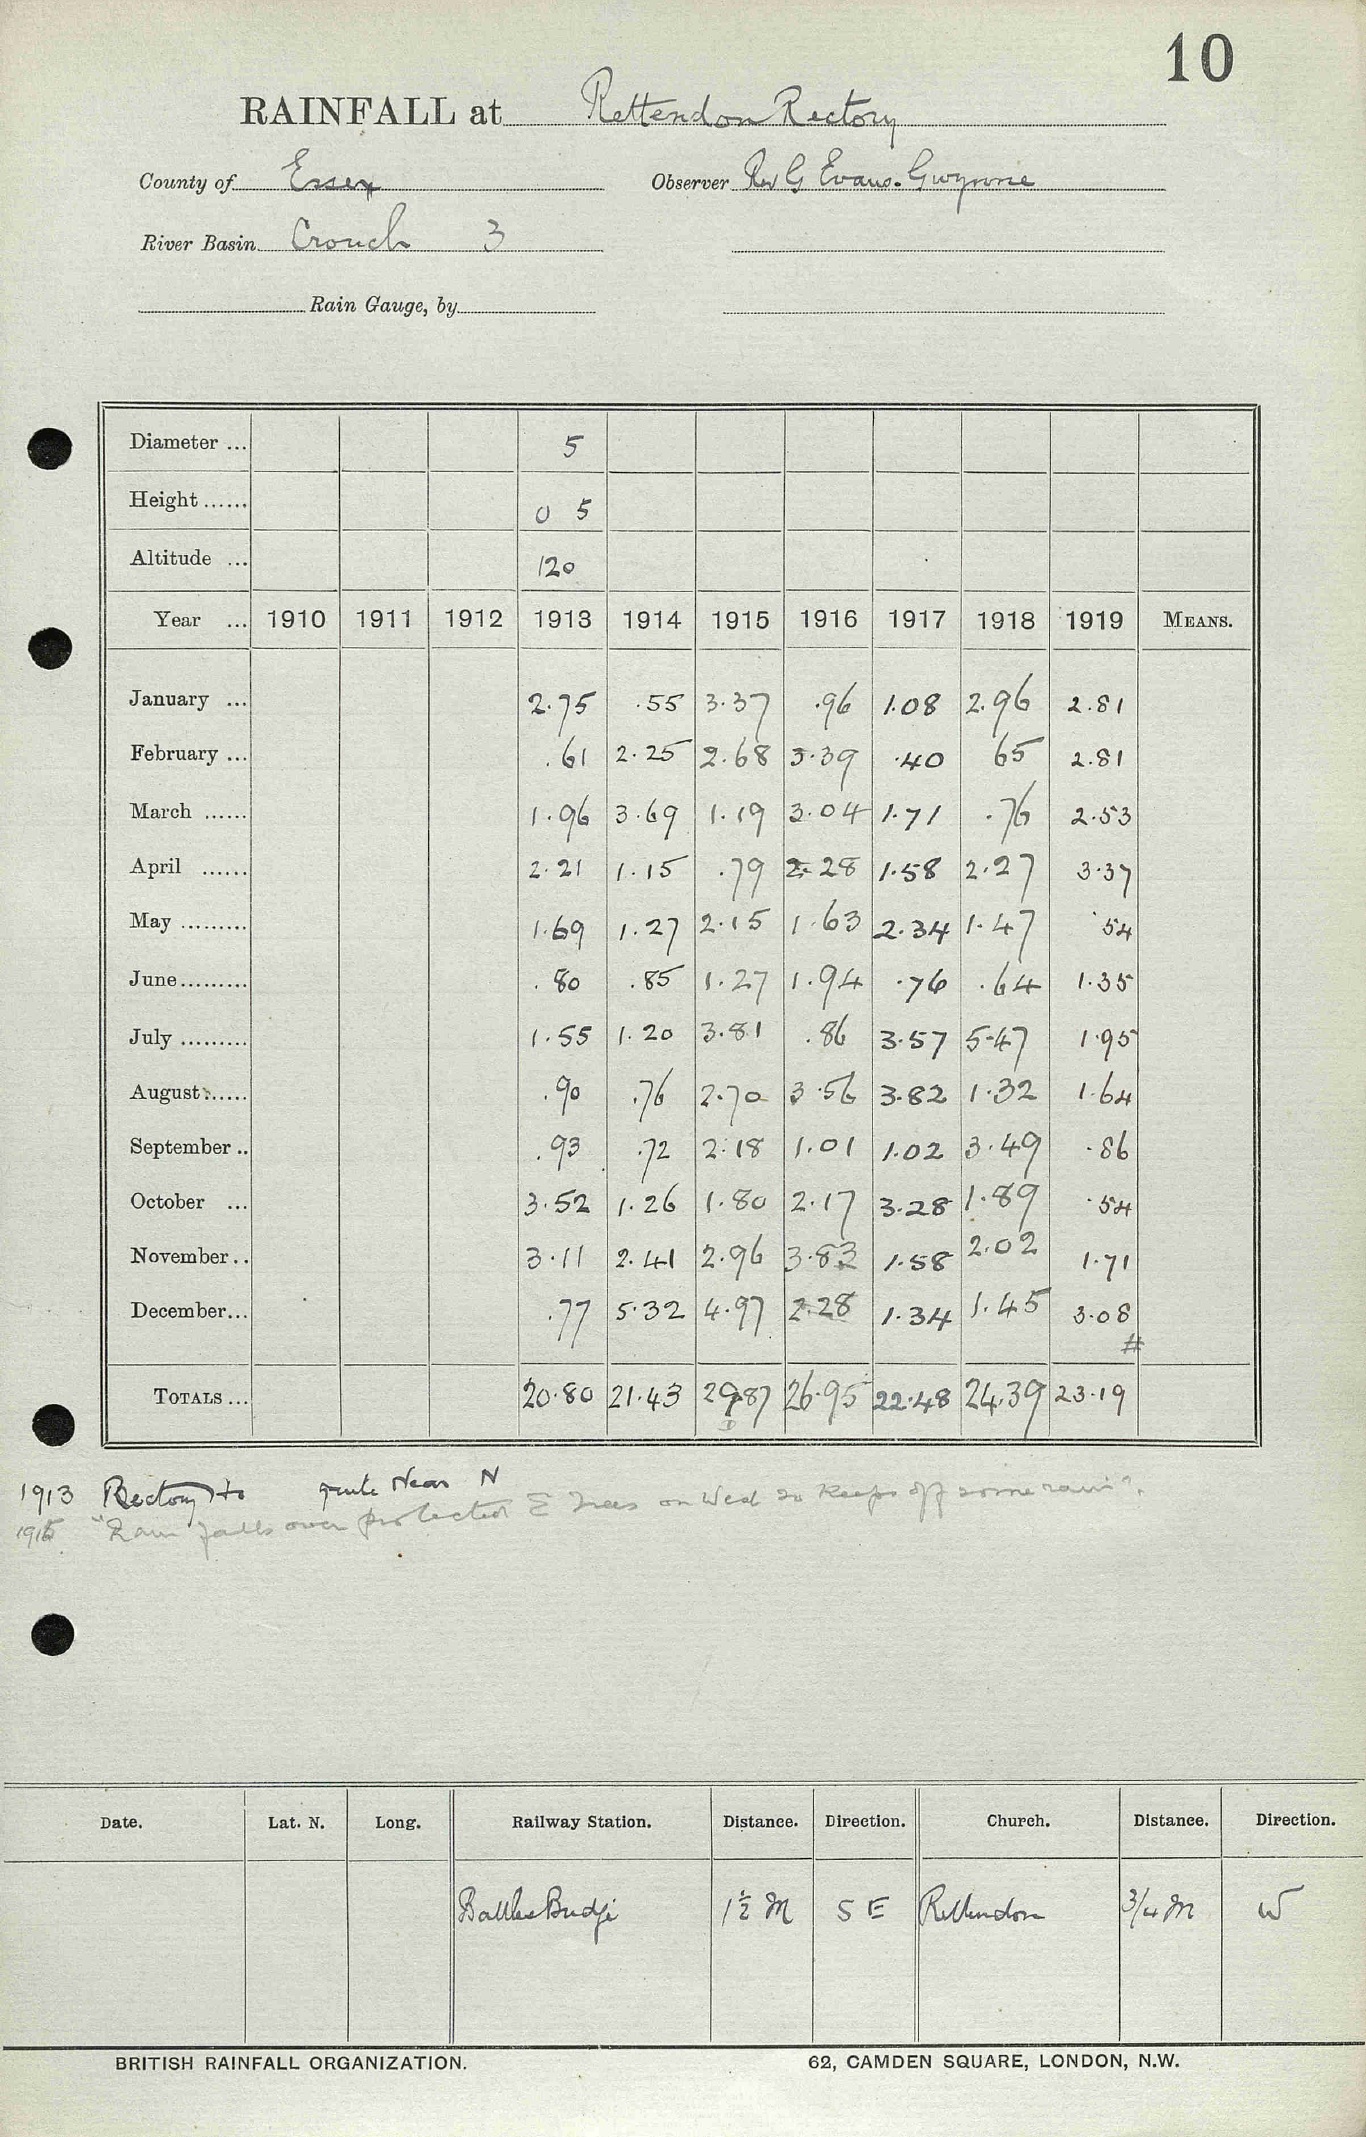 10
RAINFALL at Rettendon Rectory
County of Essex Observer Rev G Evans-Gwynne
River Basin Crouch 3
Rain Gauge, by
Diameter ... 5
Height ...... 0 5
Altitude ... 120
Year ... 1910 1911 1912 1913 1914 1915 1916 1917 1918 1919 MEANS.
January ... 2.75 .55 3.37 .96 1.08 2.96 2.81
February ... .61 2.25 2.68 3.39 .40 65 2.81
March ...... 1.96 3.69 1.19 3.04 1.71 .76 2.53
April ...... 2.21 1.15 .79 2.28 1.58 2.27 3.37
May ......... 1.69 1.27 2.15 1.63 2.34 1.47 .54
June......... .80 .85 1.27 1.94 .76 .64 1.35
July ......... 1.55 1.20 3.81 .86 3.57 5.47 1.95
August...... .90 .76 2.70 3.56 3.82 1.32 1.64
September .. .93 .72 2.18 1.01 1.02 3.49 .86
October ... 3.52 1.26 1.80 2.17 3.28 1.89 .54
November .. 3.11 2.41 2.96 3.83 1.58 2.02 1.71
December... .77 5.32 4.97 2.28 1.34 1.45 3.08
#
TOTALS ... 20.80 21.43 29.87 26.95 22.48 24.39 23.19
1913 Rectory to quite near N
1915 "Rain falls over protected E Trees on West so keeps off some rain".
Date. Lat. N. Long. Railway Station. Distance. Direction. Church. Distance. Direction.
1½ M S E Rettendon 3/4 M W
BRITISH RAINFALL ORGANIZATION. 62, CAMDEN SQUARE, LONDON, N.W.